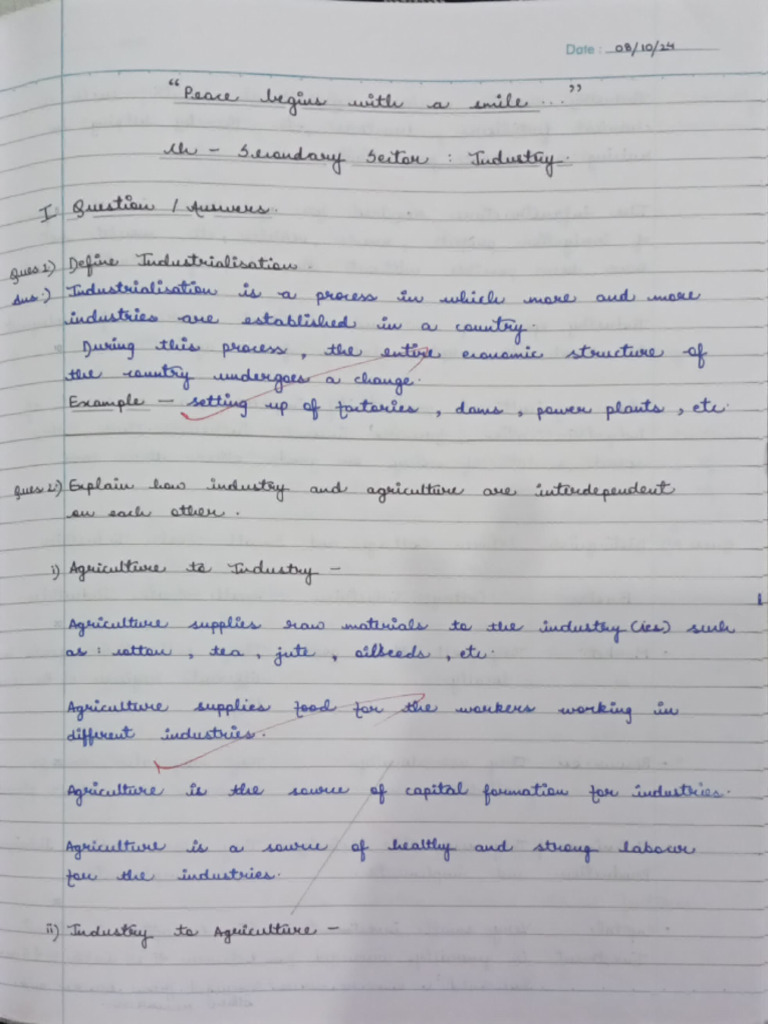 Date : 08/10/24
"Peace begins with a smile..."
Ch - Secondary Sector : Industry.
I. Question / Answers.
Ques 1) Define Industrialisation.
Ans:) Industrialisation is a process in which more and more
industries are established in a country.
During this process, the entire economic structure of
the country undergoes a change.
Example - setting up of factories, dams, power plants, etc.
Ques 2) Explain how industry and agriculture are interdependent
on each other.
i) Agriculture to Industry -
Agriculture supplies raw materials to the industry(ies) such
as : cotton, tea, jute, oilseeds, etc.
Agriculture supplies food for the workers working in
different industries.
Agriculture is the source of capital formation for industries.
Agriculture is a source of healthy and strong labour
for the industries.
ii) Industry to Agriculture -